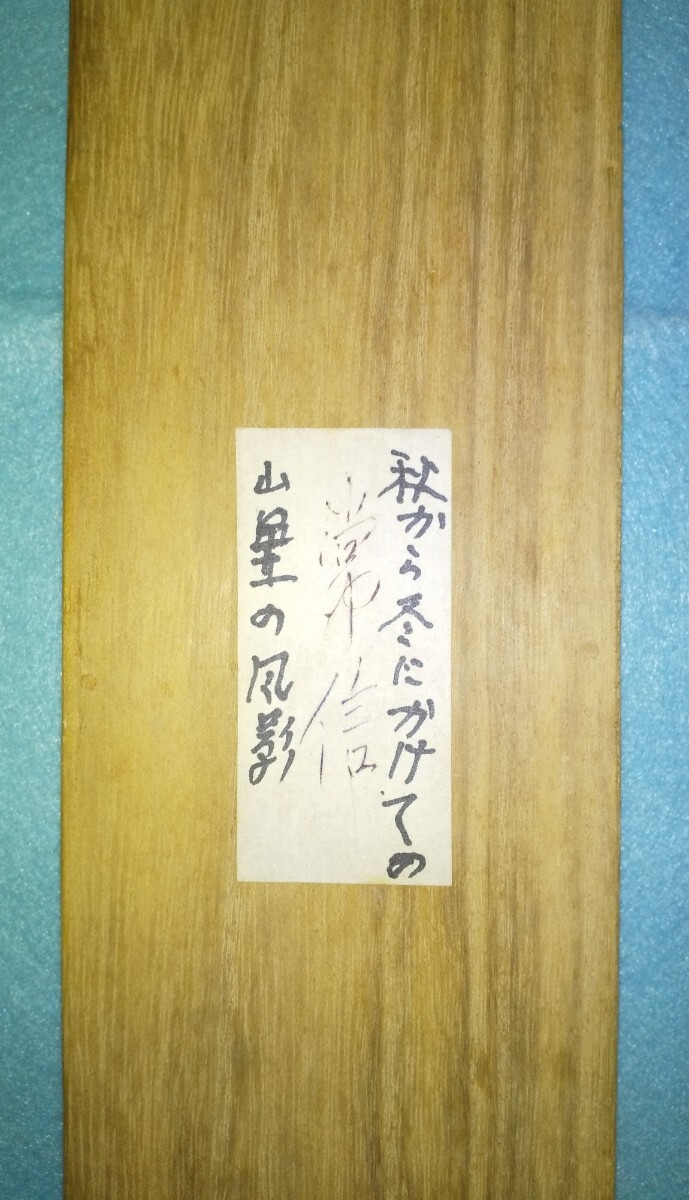 秋から冬にかけての
常信
山里の風影